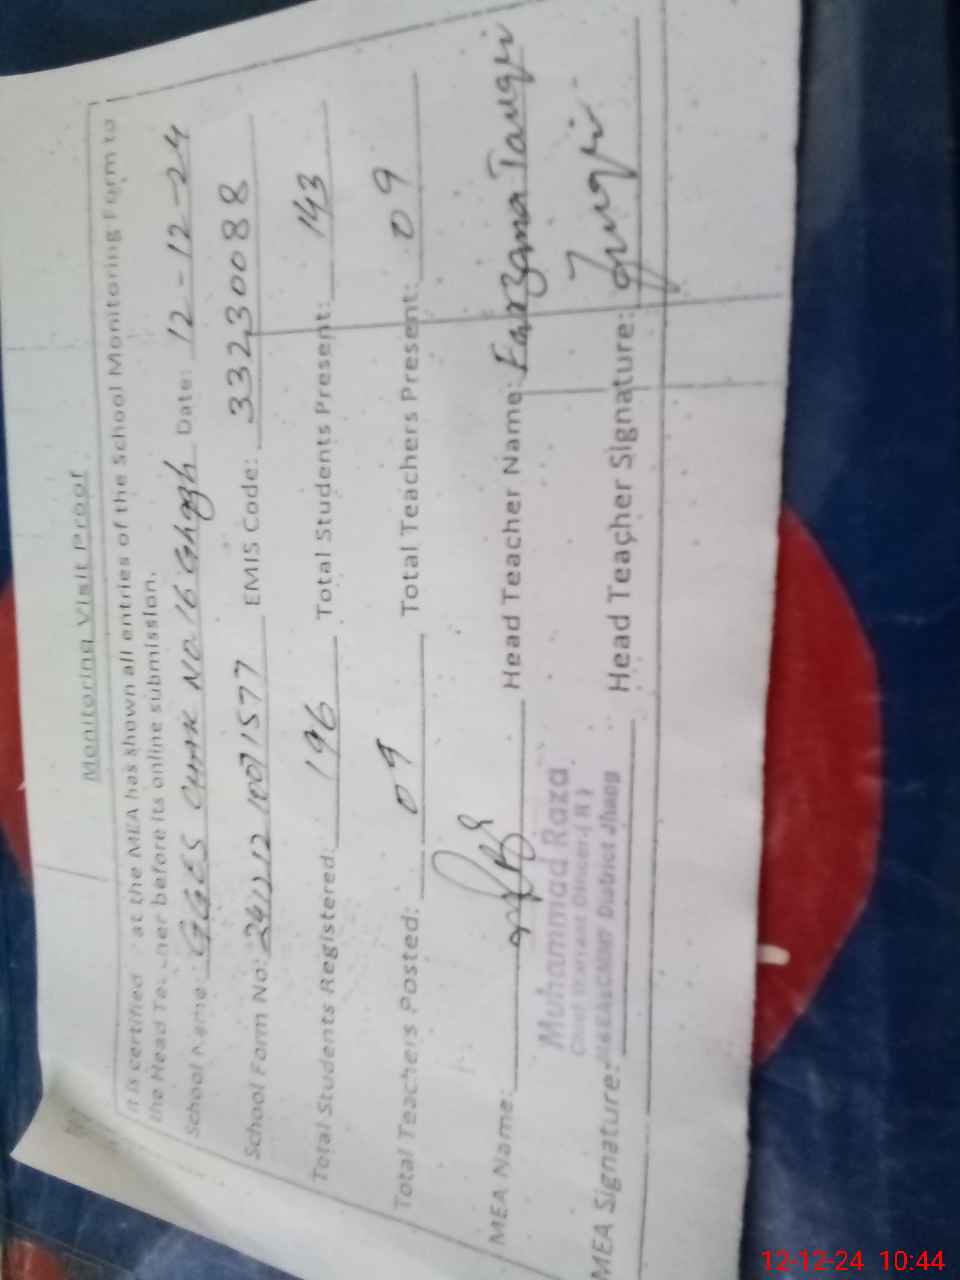 Monitoring Visit Proof
It is certified at the MEA has shown all entries of the School Monitoring Form to
the Head before its online submission.
School Name: GGES CHAK NO.16 Ghagh Date: 12-12-24
School Form No: EMIS Code: 33230088
Total Students Registered: 196 Total Students Present: 143
Total Teachers Posted: 09 Total Teachers Present: 09
MEA Name: Head Teacher Name: Farzana Tauqir
Muhammad Raza
District Jhang
MEA Signature: Head Teacher Signature: Tauqir
12-12-24 10:44